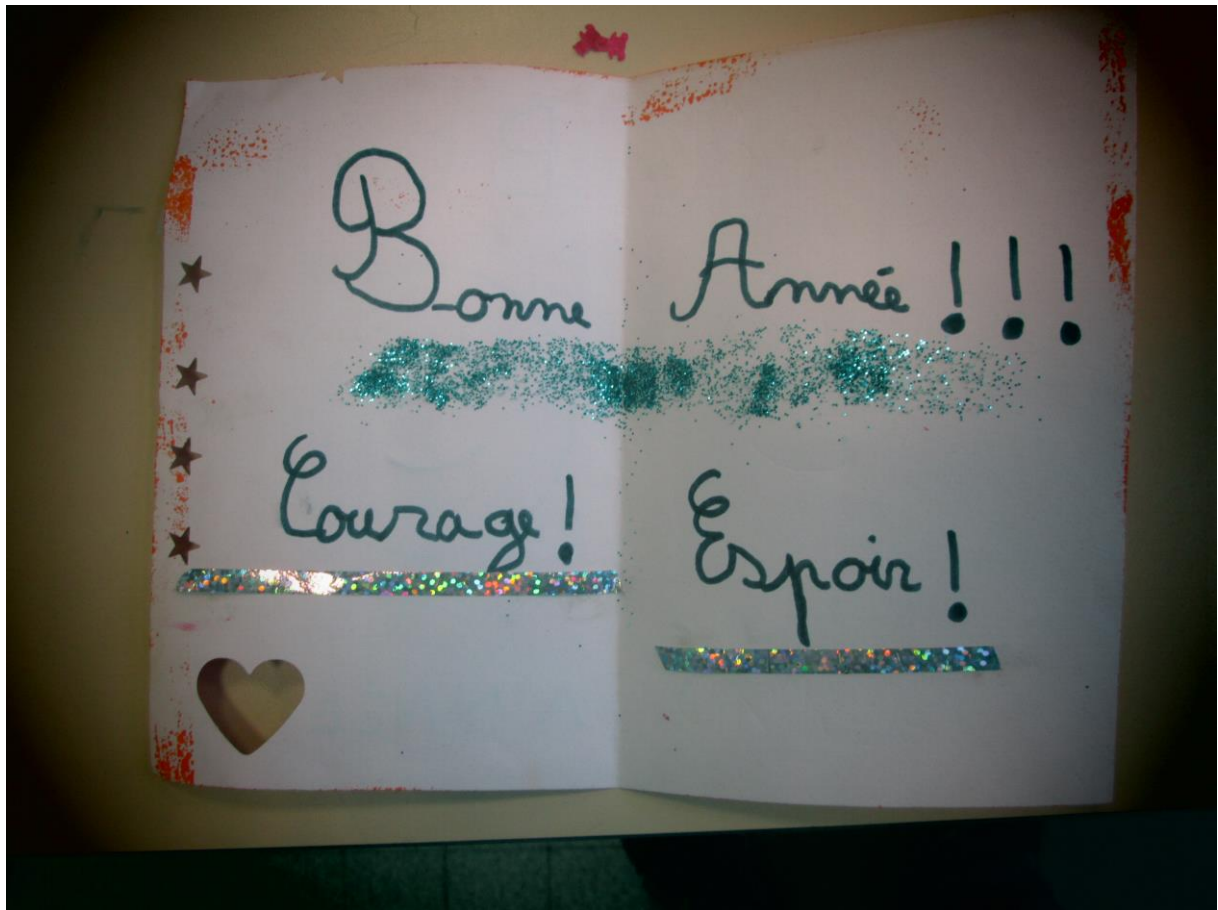 Bonne Année !!!
Courage ! Espoir !